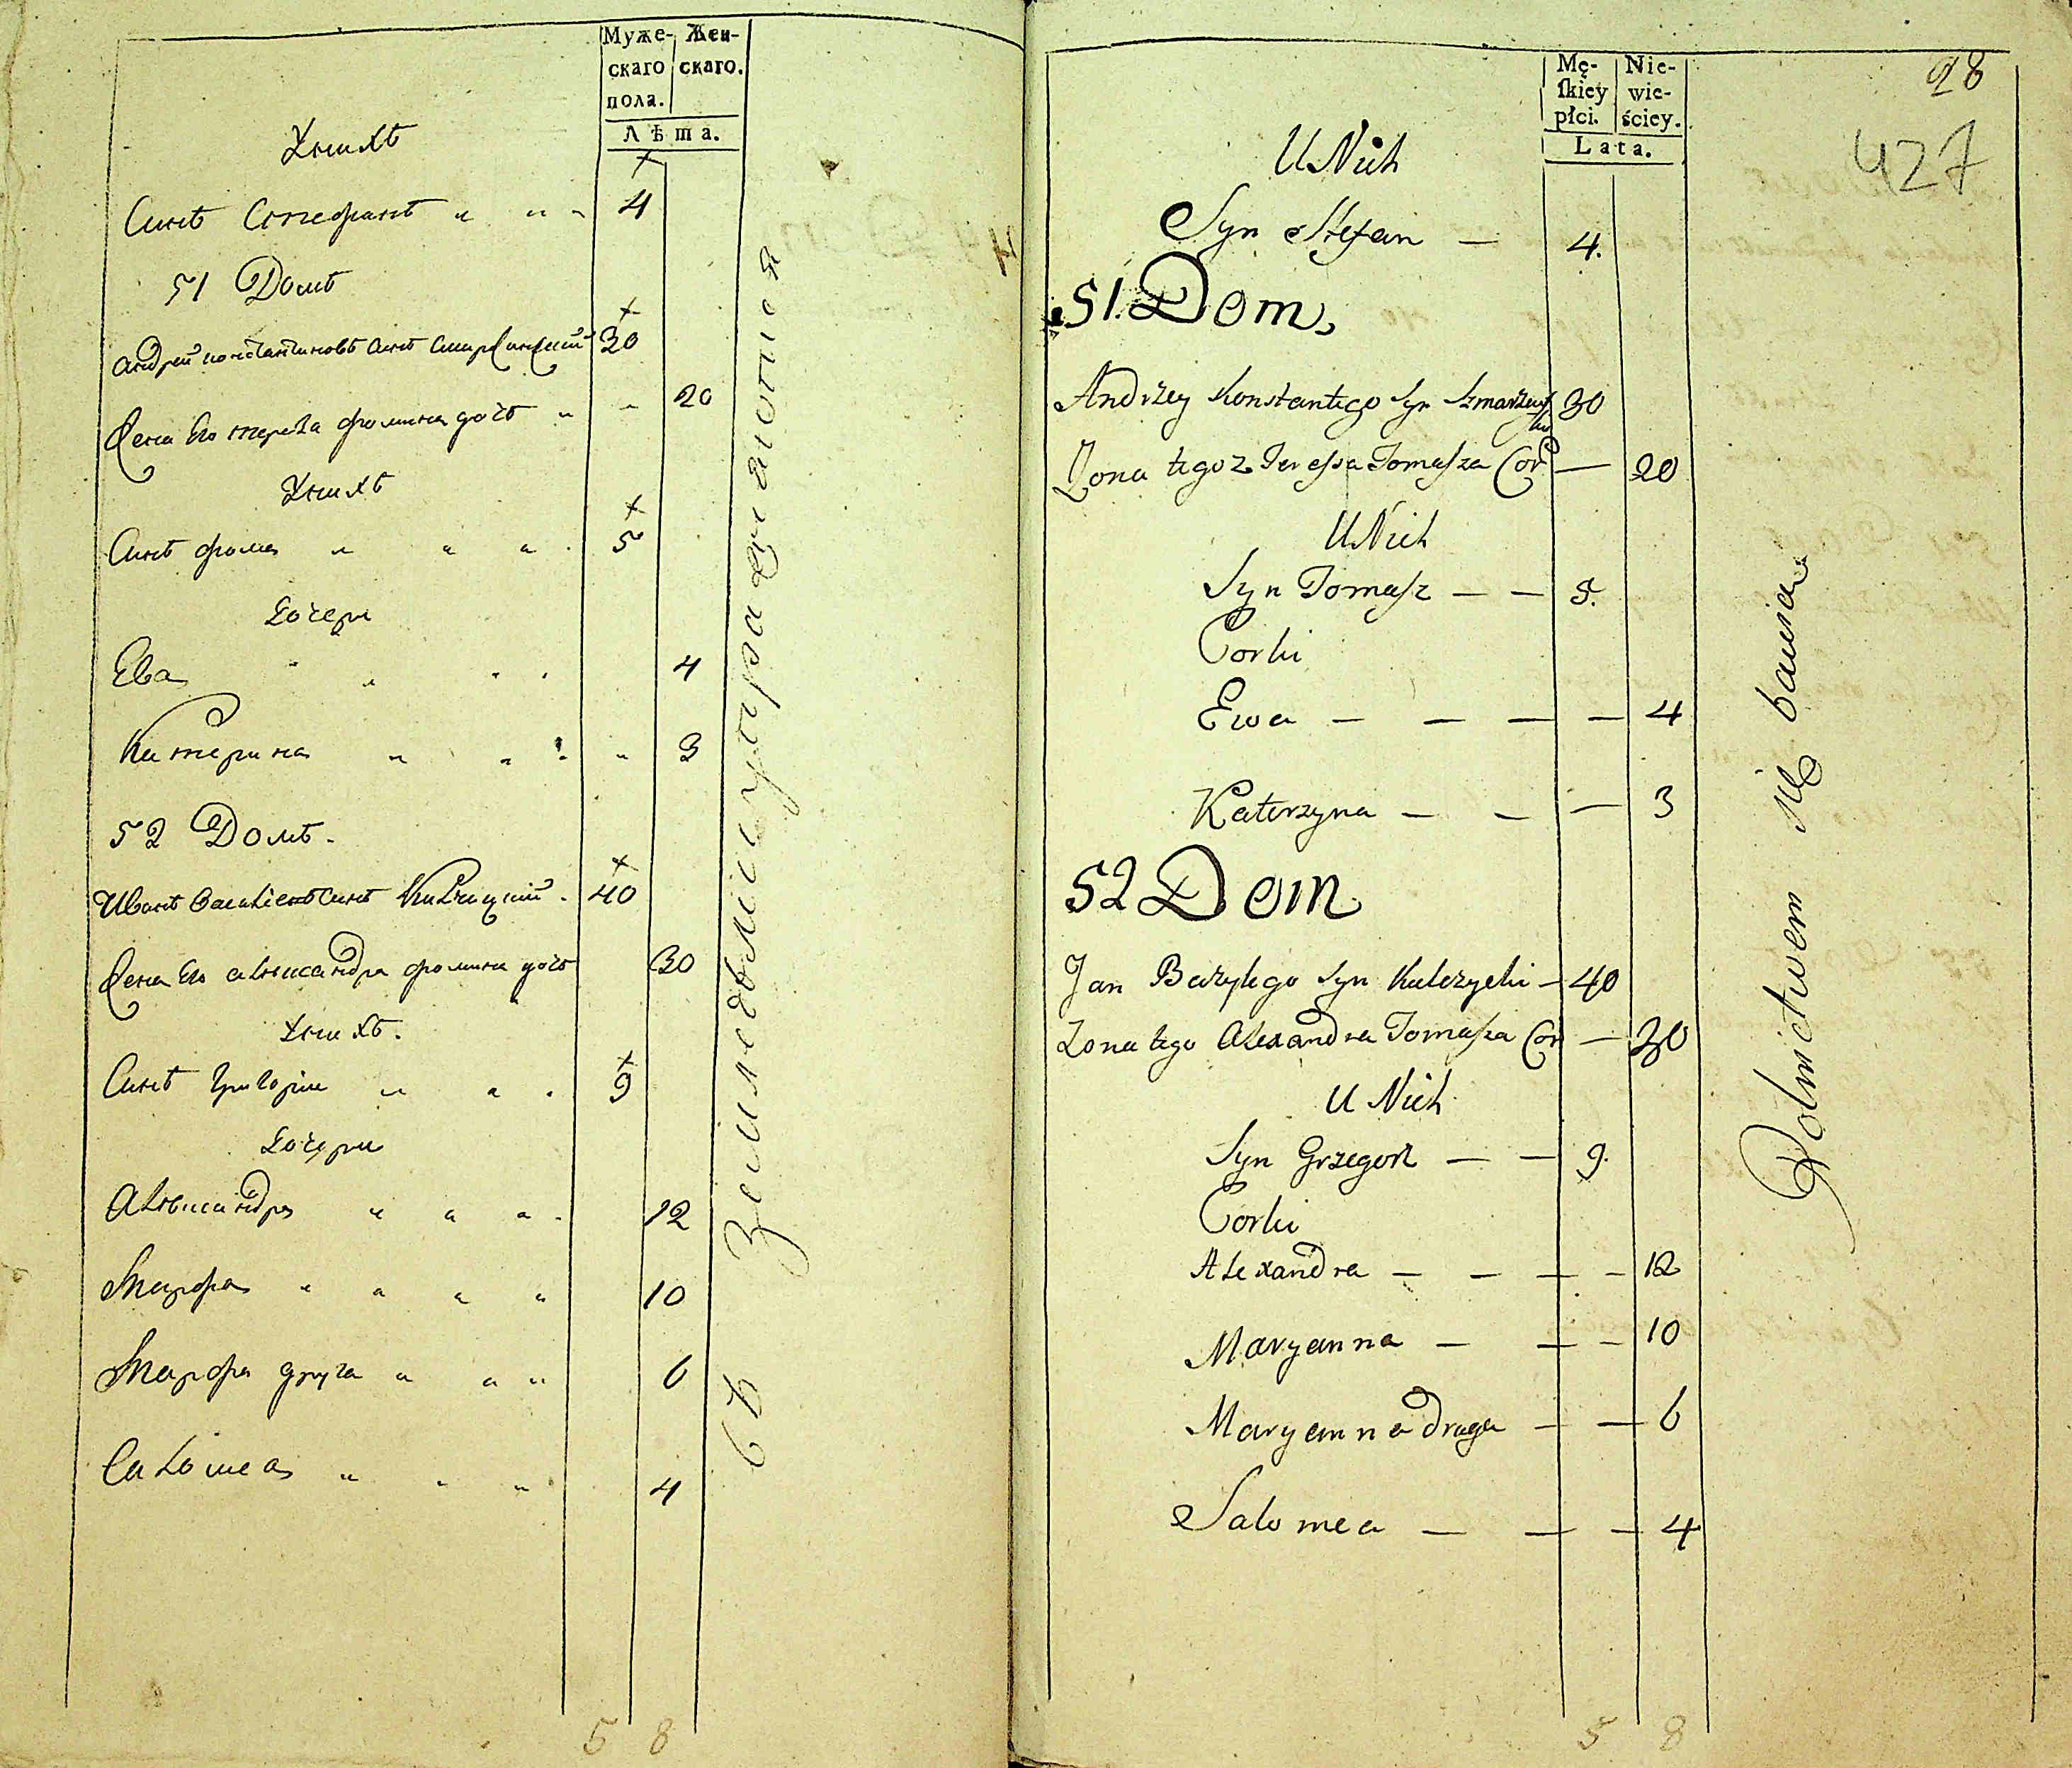 Муже- Жен-
скаго скаго.
пола.
Лѣта.
Унихъ
Синъ Стефанъ 4
51 Домъ
Андрей Константиновъ Синъ 30
Жена Его тереза фомина дочъ 20
Унихъ
Синъ фома 5
Дочери
Ева 4
Катерина 3
52 Домъ.
Иванъ Василіевъ Синъ Кулчицкий 40
Жена Его александра фомина дочъ 30
Унихъ.
Синъ Григорій 9
Дочери
Александра 12
Марфа 10
Марфа друга 6
Саломеа 4
Земледѣліи упражняются
5 8
Mę- Nie-
ſkiey wie-
płci. ściey.
Lata.
28
427
U Nich
Syn Stefan — 4.
51. Dom,
Andrzey Konstantego Syn 30
Zona tegoz Teressa Tomasza Cor — 20
U Nich
Syn Tomasz — — 5.
Corki
Ewa — — — — 4
Katerzyna — — — 3
52 Dom
Jan Bazylego Syn Kulczycki — 40
Zona tego Alexandra Tomasza Cor — 30
U Nich
Syn Grzegorz — — 9.
Corki
Alexandra — — — — 12
Maryanna — — — 10
Maryanna druga — — 6
Salomea — — — 4
Rolnictwem się bawia
5 8